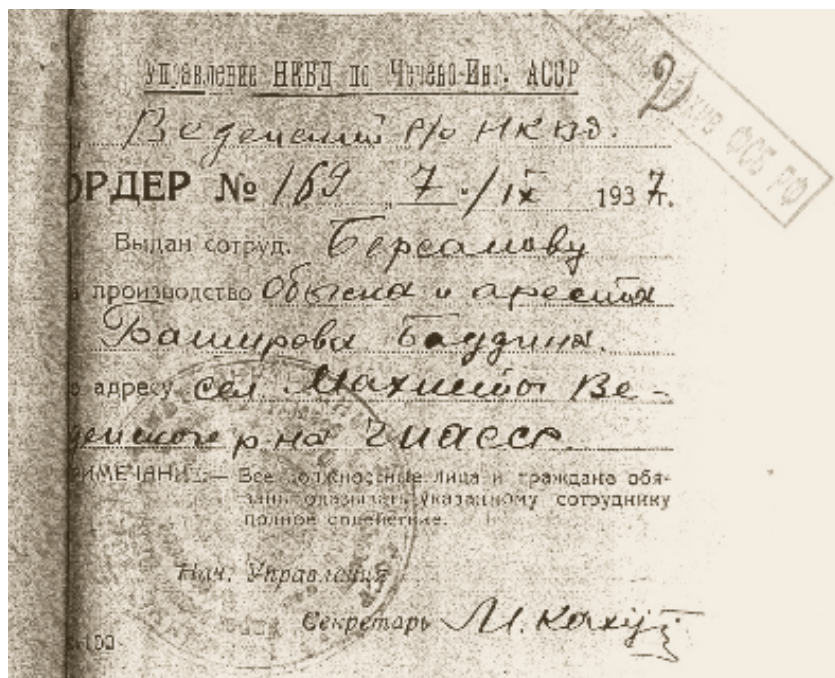 Управление НКВД по Чечено-Инг. АССР
Веденский р/о НКВД.
ОРДЕР № 169 „7./IX 1937г.
Выдан сотруд. Берсанову
производство Обыска и ареста
Баширова Баудина.
адресу сел Махкеты Ве-
денского р-на ЧИАССР
ПРИМЕЧАНИЕ:— Все должностные лица и граждане обя-
заны оказывать указанному сотруднику
полное содействие.
Нач. Управления
Секретарь М.
-100
2
архив ФСБ РФ